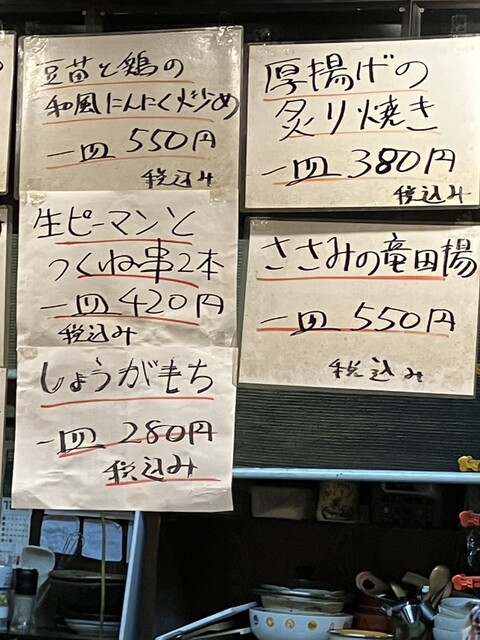 豆苗と鶏の
和風にんにく炒め
一皿 550円
税込み
生ピーマンと
つくね串2本
一皿 420円
税込み
しょうがもち
一皿 280円
税込み
厚揚げの
炙り焼き
一皿 380円
税込み
ささみの竜田揚
一皿 550円
税込み